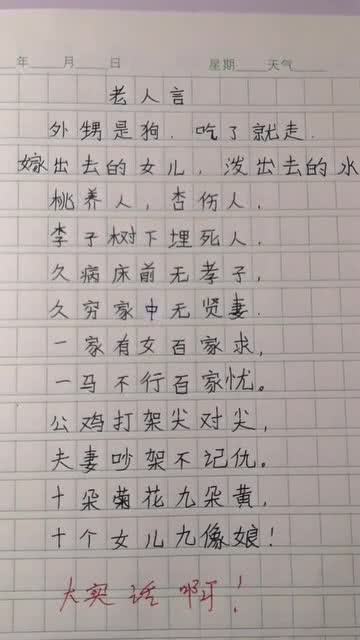 年 月 日 星期 天气
老人言
外甥是狗.吃了就走.
嫁出去的女儿,泼出去的水
桃养人,杏伤人.
李子树下埋死人.
久病床前无孝子,
久穷家中无贤妻.
一家有女百家求,
一马不行百家忧。
公鸡打架尖对尖,
夫妻吵架不记仇。
十朵菊花九朵黄,
十个女儿九像娘!
大实话啊!